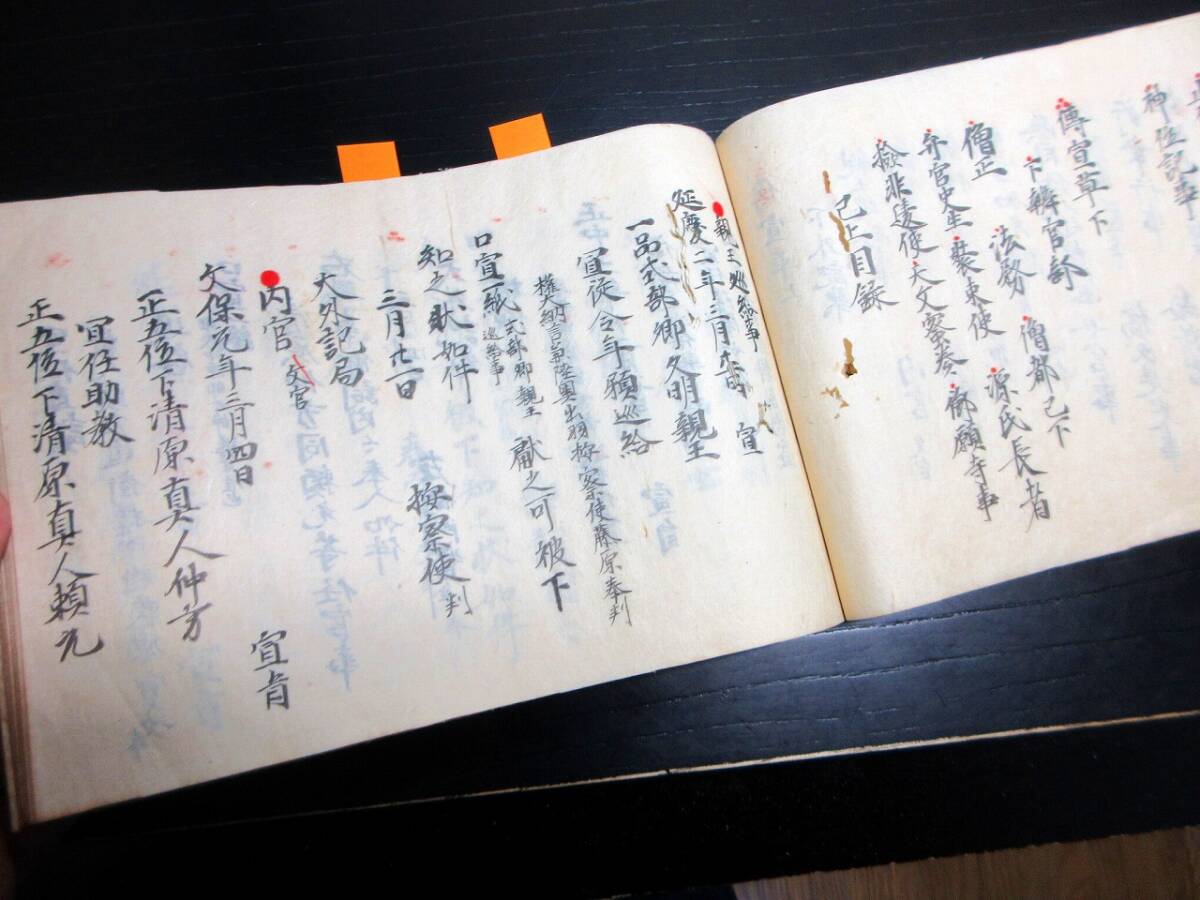 神位記事
傳宣草下
下辨官部
僧正 法務 僧都已下
弁官史生 裝束使 源氏長者
撿非違使 天文密奏 御願寺事
已上目録
親王巡給事
延慶二年三月廿一日 宣
一品式部卿久明親王
宣從今年預巡給
權大納言兼陸奥出羽按察使藤原奉判
口宣一紙 式部卿親王 巡給事 獻之可被下
知之狀如件
三月廿一日 按察使判
大外記局
内官 文官
文保元年三月四日 宣旨
正五位下清原真人仲方
宜任助教
正五位下清原真人頼元